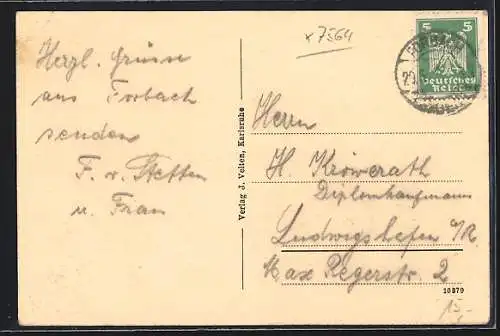 x 7564
5 5
Deutsches
Reich
Herzl. Grüsse
aus Forbach
senden
F. v. Stetten
u. Frau
Verlag J. Velten, Karlsruhe
Herrn
H. Kröwerath
Diplomkaufmann
Ludwigshafen a/R
Max Regerstr. 2
10879
15,-